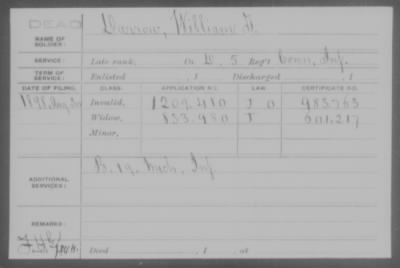 DEAD
NAME OF SOLDIER: Darrow, William H.
SERVICE: Late rank, Co D. 5 Reg't Conn, Inf.
TERM OF SERVICE: Enlisted , 1 Discharged , 1
DATE OF FILING. CLASS. APPLICATION NO. LAW. CERTIFICATE NO.
1898, Aug, Invalid, 1209.410 J O. 985.765
Widow, 153.480 J 601,217
Minor,
ADDITIONAL SERVICES: B. 19. Mich, Inf
REMARKS:
Died , 1 , at